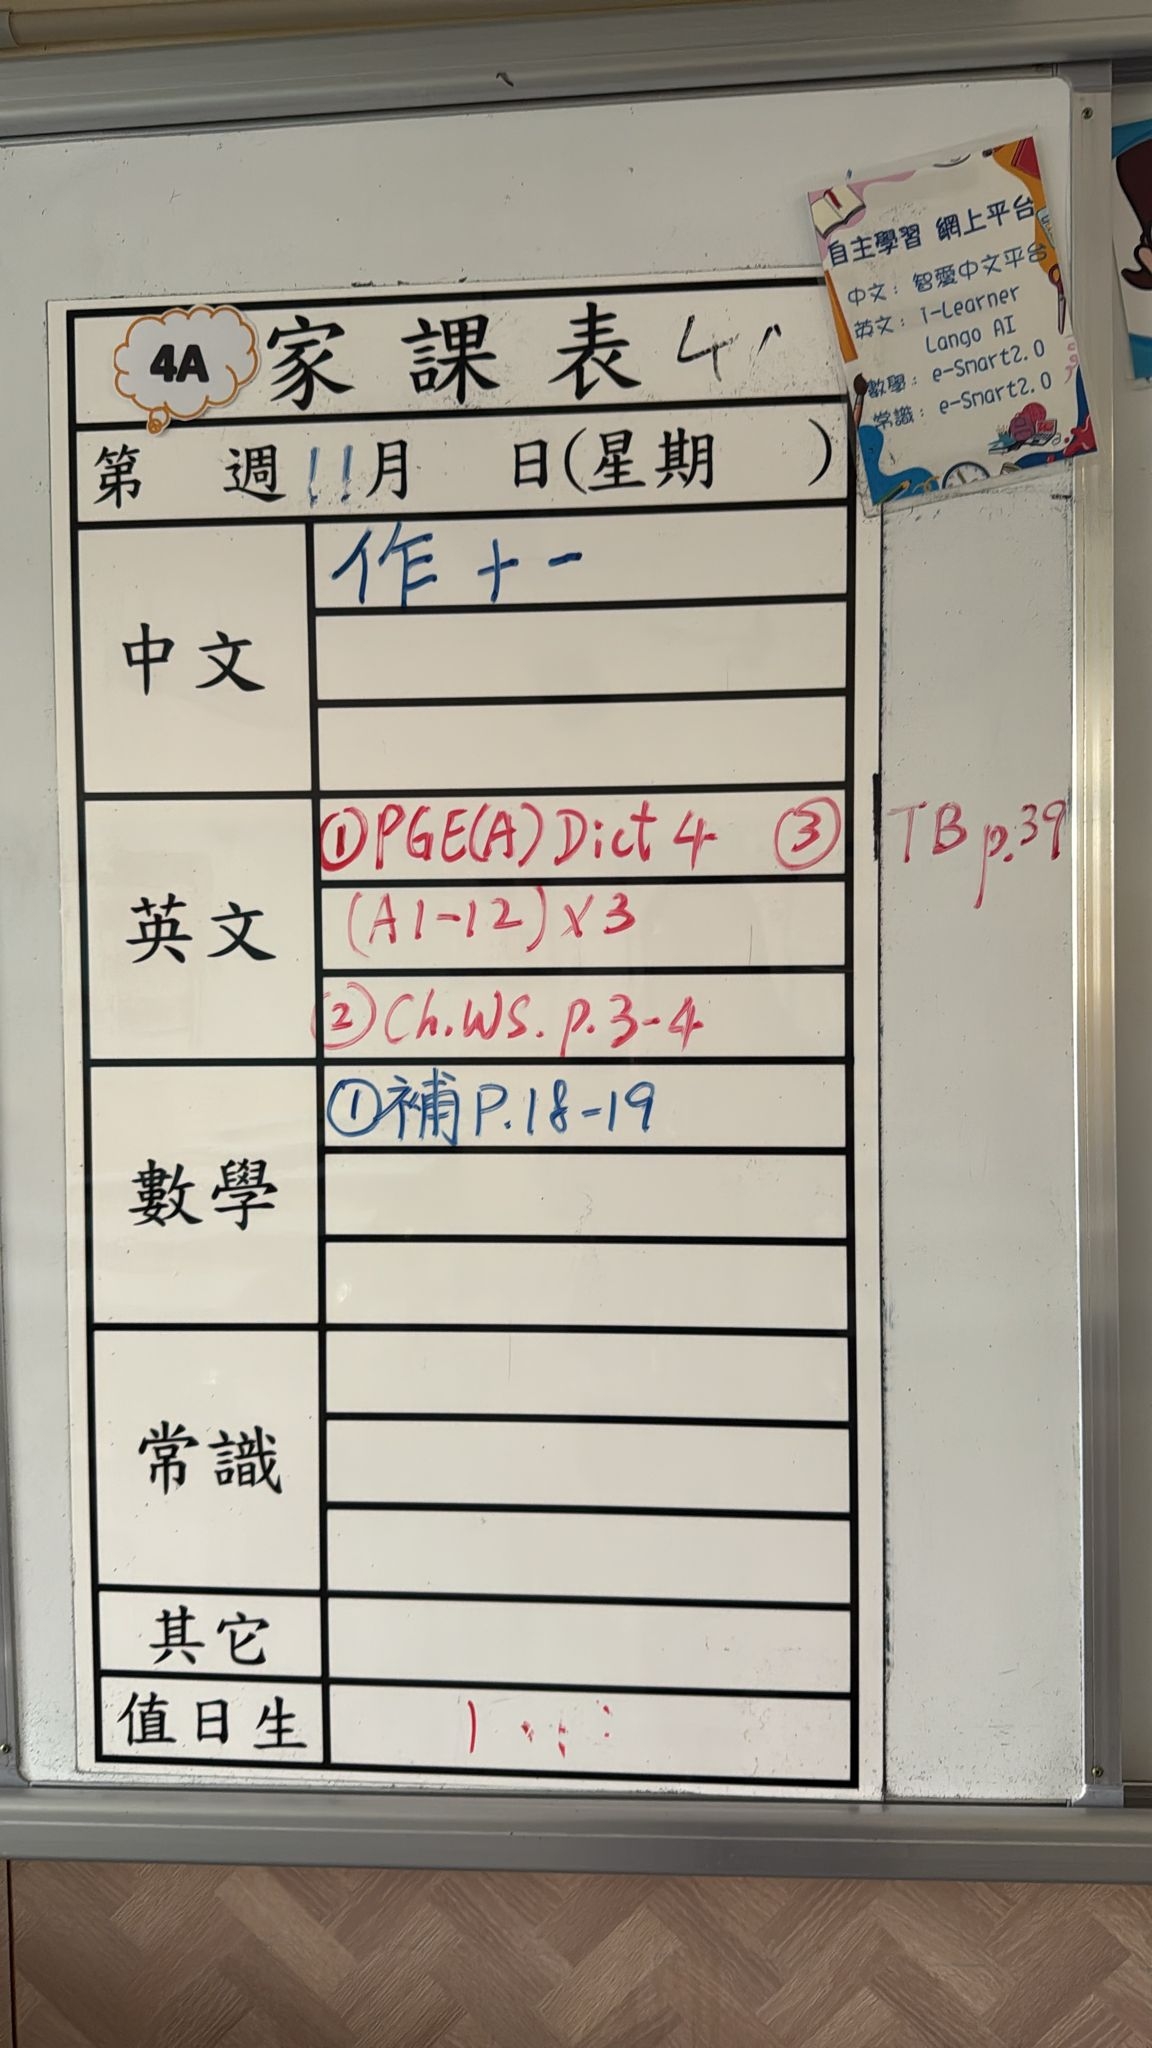 4A 家課表 4
自主學習 網上平台
中文：智愛中文平台
英文：i-Learner
Lango AI
數學：e-Smart2.0
常識：e-Smart2.0
第 週 11月 日(星期 )
中文
作 十一
英文
①PGE(A) Dict 4 ③ TB p.39
(A1-12)×3
②Ch.WS. p.3-4
數學
①補P.18-19
常識
其它
值日生